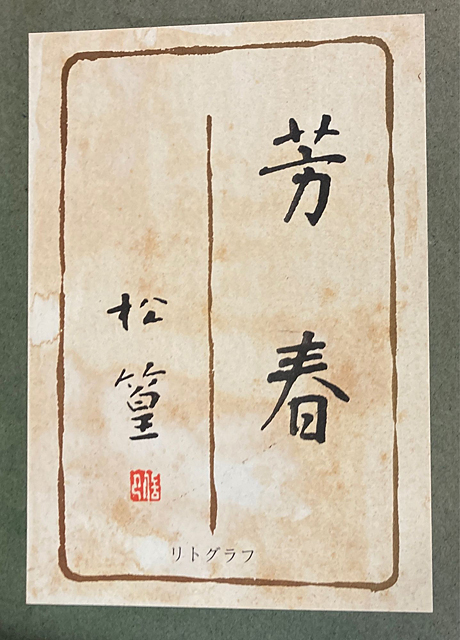 芳春
松篁
リトグラフ